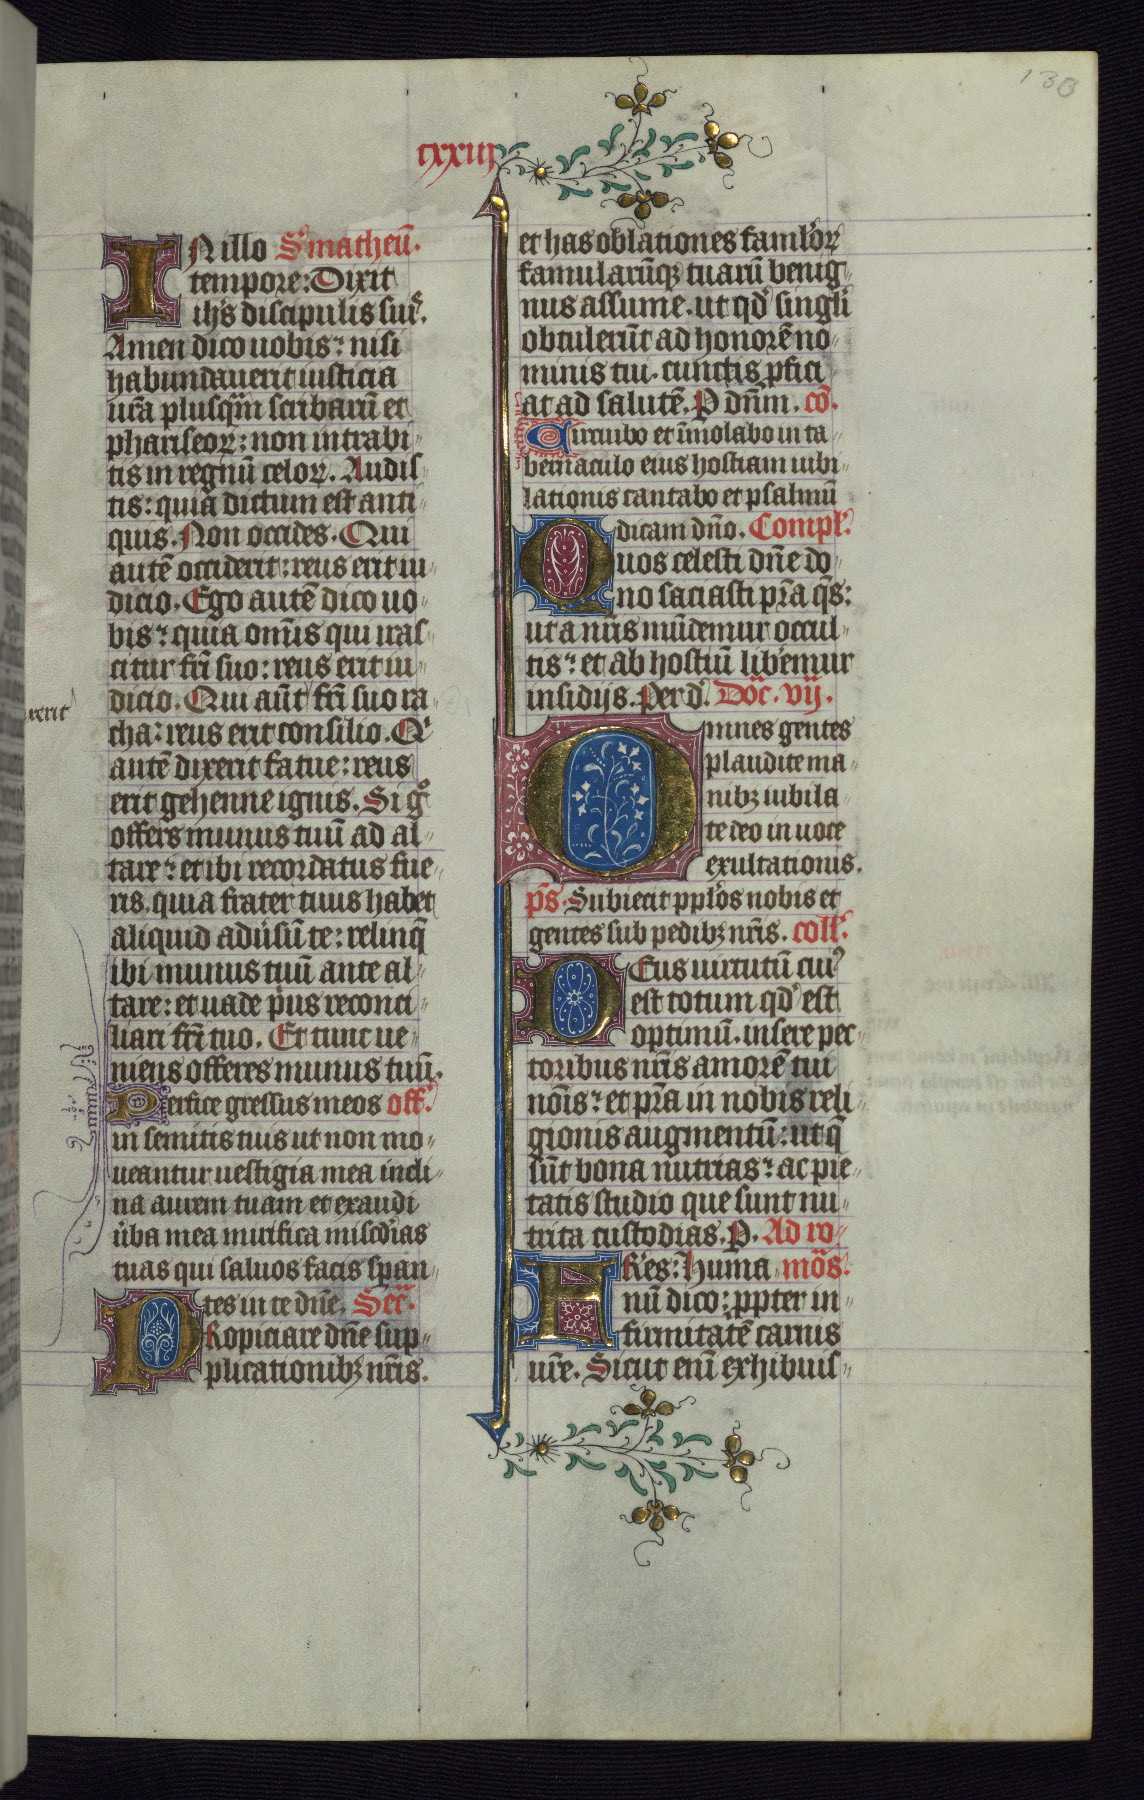 130
cxxiiij
IN illo S'. matheū.
tempore: Dixit
ihs discipulis suis.
Amen dico uobis: nisi
habundauerit iusticia
ur̄a plusqm̄ scribarū et
phariseoꝝ: non intrabi
tis in regnū celoꝝ. Audis
tis: quia dictum est anti
quis. Non occides. Qui
autē occiderit: reus erit iu
dicio. Ego autē dico uo
bis: quia om̄is qui iras
citur fr̄i suo: reus erit iu
dicio. Qui aūt fr̄i suo ra
cha: reus erit consilio. Qi
autē dixerit fatue: reus
erit gehenne ignis. Si gͦ
offers munus tuū ad al
tare: et ibi recordatus fue
ris. quia frater tuus habet
aliquid aduersū te: relinq̄
ibi munus tuū ante al
tare: et uade prius reconci
liari fr̄i tuo. Et tunc ue
niens offeres munus tuū.
Perfice gressus meos off'.
in semitis tuis ut non mo
ueantur uestigia mea incli
na aurem tuam et exaudi
uba mea mirifica mis̄cdias
tuas qui saluos facis span
tes in te dn̄e. Secr̄.
PRopiciare dn̄e sup
plicationibꝫ nr̄is.
et has oblationes famloꝝ
famularūqꝫ tuarū benig
nus assume. ut qd' singuli
obtulerūt ad honorē no
minis tui. cunctis ꝓfici
at ad salutē. P dn̄m. cō.
Circuibo et īmolabo in ta
bernaculo eius hostiam iubi
lationis cantabo et psalmū
dicam dn̄o. Compl'.
Quos celesti dn̄e do
no saciasti pr̄a q̄s:
ut a nr̄is mūdemur occul
tis: et ab hostiū lib'emur
insidijs. Per d'. Dōc. vij.
Omnes gentes
plaudite ma
nibꝫ iubila
te deo in uoce
exultationis.
p̄s. Subiecit pplos nobis et
gentes sub pedibꝫ nr̄is. coll'.
DEus uirtutū cui⁹
est totum qd' est
optimū. insere pec
toribus nr̄is amorē tui
nōis: et pr̄a in nobis reli
gionis augmentū: ut q̄
sūt bona nutrias: ac pie
tatis studio que sunt nu
trita custodias. P. Ad ro
FRēs: Huma mōs.
nū dico: ꝓpter in
firmitatē carnis
ur̄e. Sicut enī exhibuis